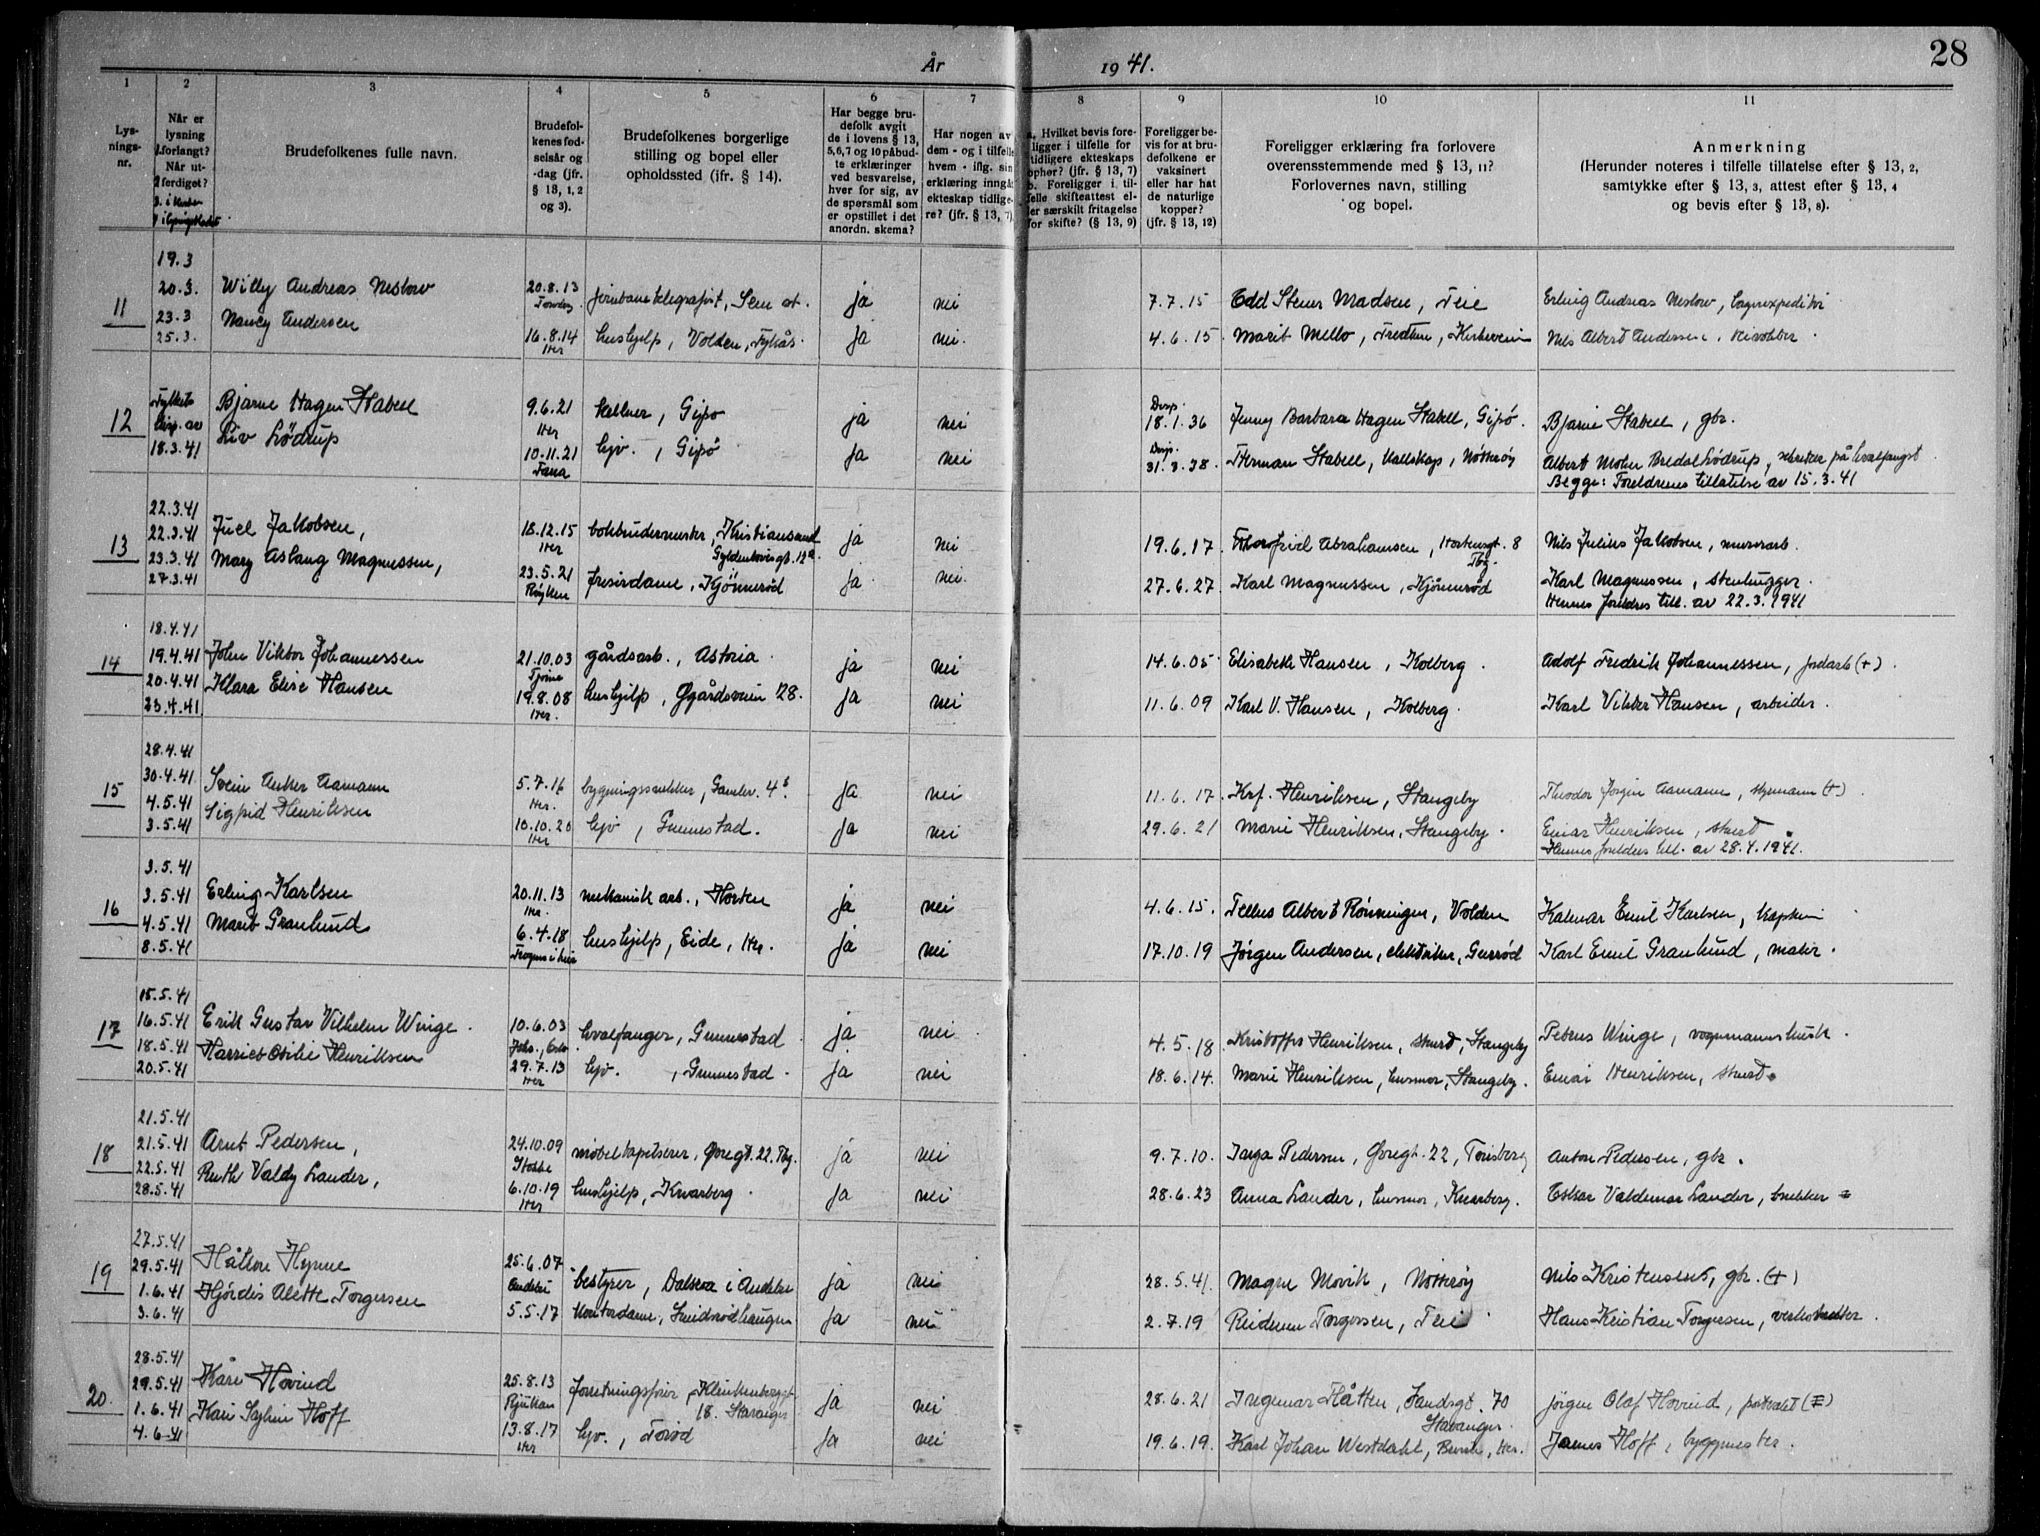 År 1941.
28
1 2 3 4 5 6 7 8 9 10 11
Lysningsnr.
Når er lysning forlangt? Når utferdiget?
Brudefolkenes fulle navn.
Brudefolkenes fødselsår og -dag (jfr. § 13, 1, 2 og 3).
Brudefolkenes borgerlige stilling og bopel eller opholdssted (ifr. § 14).
Har begge brudefolk avgit de i lovens § 13, 5,6,7 og 10 påbudte erklæringer ved besvarelse, hver for sig, av de spørsmål som er opstillet i det anordn. skema?
Har nogen av dem - og i tilfelle hvem - iflg. sin erklæring inngått ekteskap tidligere? (jfr. § 13, 7)
a. Hvilket bevis foreligger i tilfelle for tidligere ekteskaps ophør? (jfr. § 13, 7) b. Foreligger i tilfelle skifteattest eller særskilt fritagelse for skifte? (§ 13, 9)
Foreligger bevis for at brudefolkene er vaksinert eller har hat de naturlige kopper? (jfr. § 13, 12)
Foreligger erklæring fra forlovere overensstemmende med § 13, 11? Forlovernes navn, stilling og bopel.
Anmerkning (Herunder noteres i tilfelle tillatelse efter § 13, 2, samtykke efter § 13, 3, attest efter § 13, 4 og bevis efter § 13, 8).
11
19.3
20.3.
23.3
25.3.
Willy Andreas
20.8.13
jernbanetelegrafist, Sem st.
ja
nei
7.7.15
Odd Stener Madsen, Teie
Erling Andreas
Nancy Andersen
16.8.14
Her
hushjelp, Volden,
ja
nei.
4.6.15
Marit Mello,
Nils Albert Andersen,
12
Fylkets
disp. av
18.3.41
Bjarne Hagen Stabell
9.6.21
Her
, Gipø
ja
nei
Disp.
18.1.36
Jenny Barbara Hagen Stabell, Gipø.
Bjarne Stabell, gbr.
Liv Lødrup
10.11.21
Fana
hjv., Gipø
ja
nei
Disp.
31.3.38.
Herman Stabell, Kallskap, Nøtterøy
Albert Bredal Lødrup, på hvalfangst
Begge: Foreldrenes tillatelse av 15.3.41
13
22.3.41
22.3.41
23.3.41
27.3.41
Juel Jakobsen,
18.12.15
Her
, Kristiansand
Gyldenløvesgt. 12
ja
nei
19.6.17.
Thorfriel Abrahamsen, gt. 8
Tbg.
Nils Julius Jakobsen, murerarb.
Mary Aslaug Magnussen,
23.5.21
Røyken
frisørdame, Kjønnerød
ja
nei.
27.6.27.
Karl Magnussen, Kjønnerød
Karl Magnussen, stenhugger.
Hennes foreldres till. av 22.3.1941
14
18.4.41
19.4.41
20.4.41
23.4.41
John Viktor Johannessen
21.10.03
Tjøme
gårdsarb., Astoria.
ja
nei
14.6.05.
Elisabeth Hansen, Kolberg.
Adolf Fredrik Johannessen, jordarb (+).
Klara Elise Hansen
19.8.08
Her.
hushjelp, Øgårdsveien 28.
ja
nei
11.6.09
Karl V. Hansen, Kolberg.
Karl Viktor Hansen, arbeider.
15
28.4.41
30.4.41
4.5.41
3.5.41
Svein Anker Aamann
5.7.16
Her.
bygningssnekker, Gamlev. 4
ja
nei
11.6.17.
Krf. Henriksen, Stangeby
Theodor Jørgen Aamann, styrmann (+).
Sigfrid Henriksen
10.10.20
Her
hjv, Gunnestad.
ja
nei
29.6.21
Marie Henriksen, Stangeby.
Einar Henriksen, stuert
Hennes foreldres till. av 28.4.1941.
16
3.5.41
3.5.41
4.5.41
8.5.41
Erling Karlsen
20.11.13
Her.
mekanisk arb., Horten
ja
nei
4.6.15.
Tellus Albert Rønningen, Volden
Kalmar Emil Karlsen, kaptein
Marit Granlund
6.4.18
hushjelp, Eide, Her.
ja
nei
17.10.19
Jørgen Andersen, elektriker,
Karl Emil Granlund, maler.
17
15.5.41
16.5.41
18.5.41
20.5.41
Erik Gustav Vilhelm Winge.
10.6.03
hvalfanger, Gunnestad
ja
nei
4.5.18.
Kristoffer Henriksen, stuert, Stangeby
Petrus Winge, vognmannskusk.
Harriet Otilie Henriksen
29.7.13
Her
hjv., Gunnestad.
ja
nei
18.6.14.
Marie Henriksen, husmor, Stangeby.
Einar Henriksen, stuert.
18
21.5.41
21.5.41
22.5.41
28.5.41
Arnt Pedersen,
24.10.09
Stokke
møbeltapetserer, Øvregt. 22. Tbg.
ja
nei
9.7.10.
Inga Pedersen, Øvregt. 22, Tønsberg
Anton Pedersen, gbr.
Ruth Valdy Lander,
6.10.19
Her
hushjelp, Knarberg.
ja
nei
28.6.23
Anna Lander, husmor, Knarberg.
Oskar Valdemar Lander, snekker
19
27.5.41
29.5.41
1.6.41
3.6.41
Håkon Hynne
25.6.07
Andebu
bestyrer, i Andebu
ja
nei
28.5.41.
Magne Movik, Nøtterøy
Nils Kristensen, gbr. (+)
Hjørdis Alette Torgersen
5.5.17
kontordame, Smidsrødhaugen
ja
nei
2.7.19
Torgersen, Teie
Hans Kristian Torgersen,
20.
28.5.41
29.5.41
1.6.41
4.6.41
Kåre Hovind
25.8.13
Rjukan
forretningsfører, Klinkenberggt.
18. Stavanger
ja
nei
28.6.21
Ingemar Håtten, Sandsgt. 70
Stavanger.
Jørgen Olaf Hovind,
Kari Sylvia Hoff
13.8.17
Her
hjv., Torød
ja
nei
19.6.19.
Karl Johan Westdahl, Her.
James Hoff, byggmester.